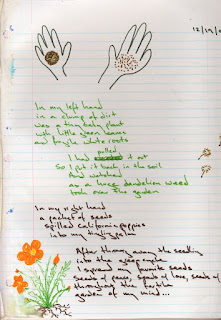 12/19/
In my left hand
in a clump of dirt
was a tiny baby plant
with little green leaves
and fragile white roots
pulled
I had it out
So I put it back in the soil
And watched
as a huge dandelion weed
took over the garden
In my right hand
a packet of seeds
spilled California poppies
into my tingling palm
After throwing away the seedling
into the
I spread my favorite seeds
seeds of peace, seeds of love, seeds of
throughout the fertile
garden of my mind...